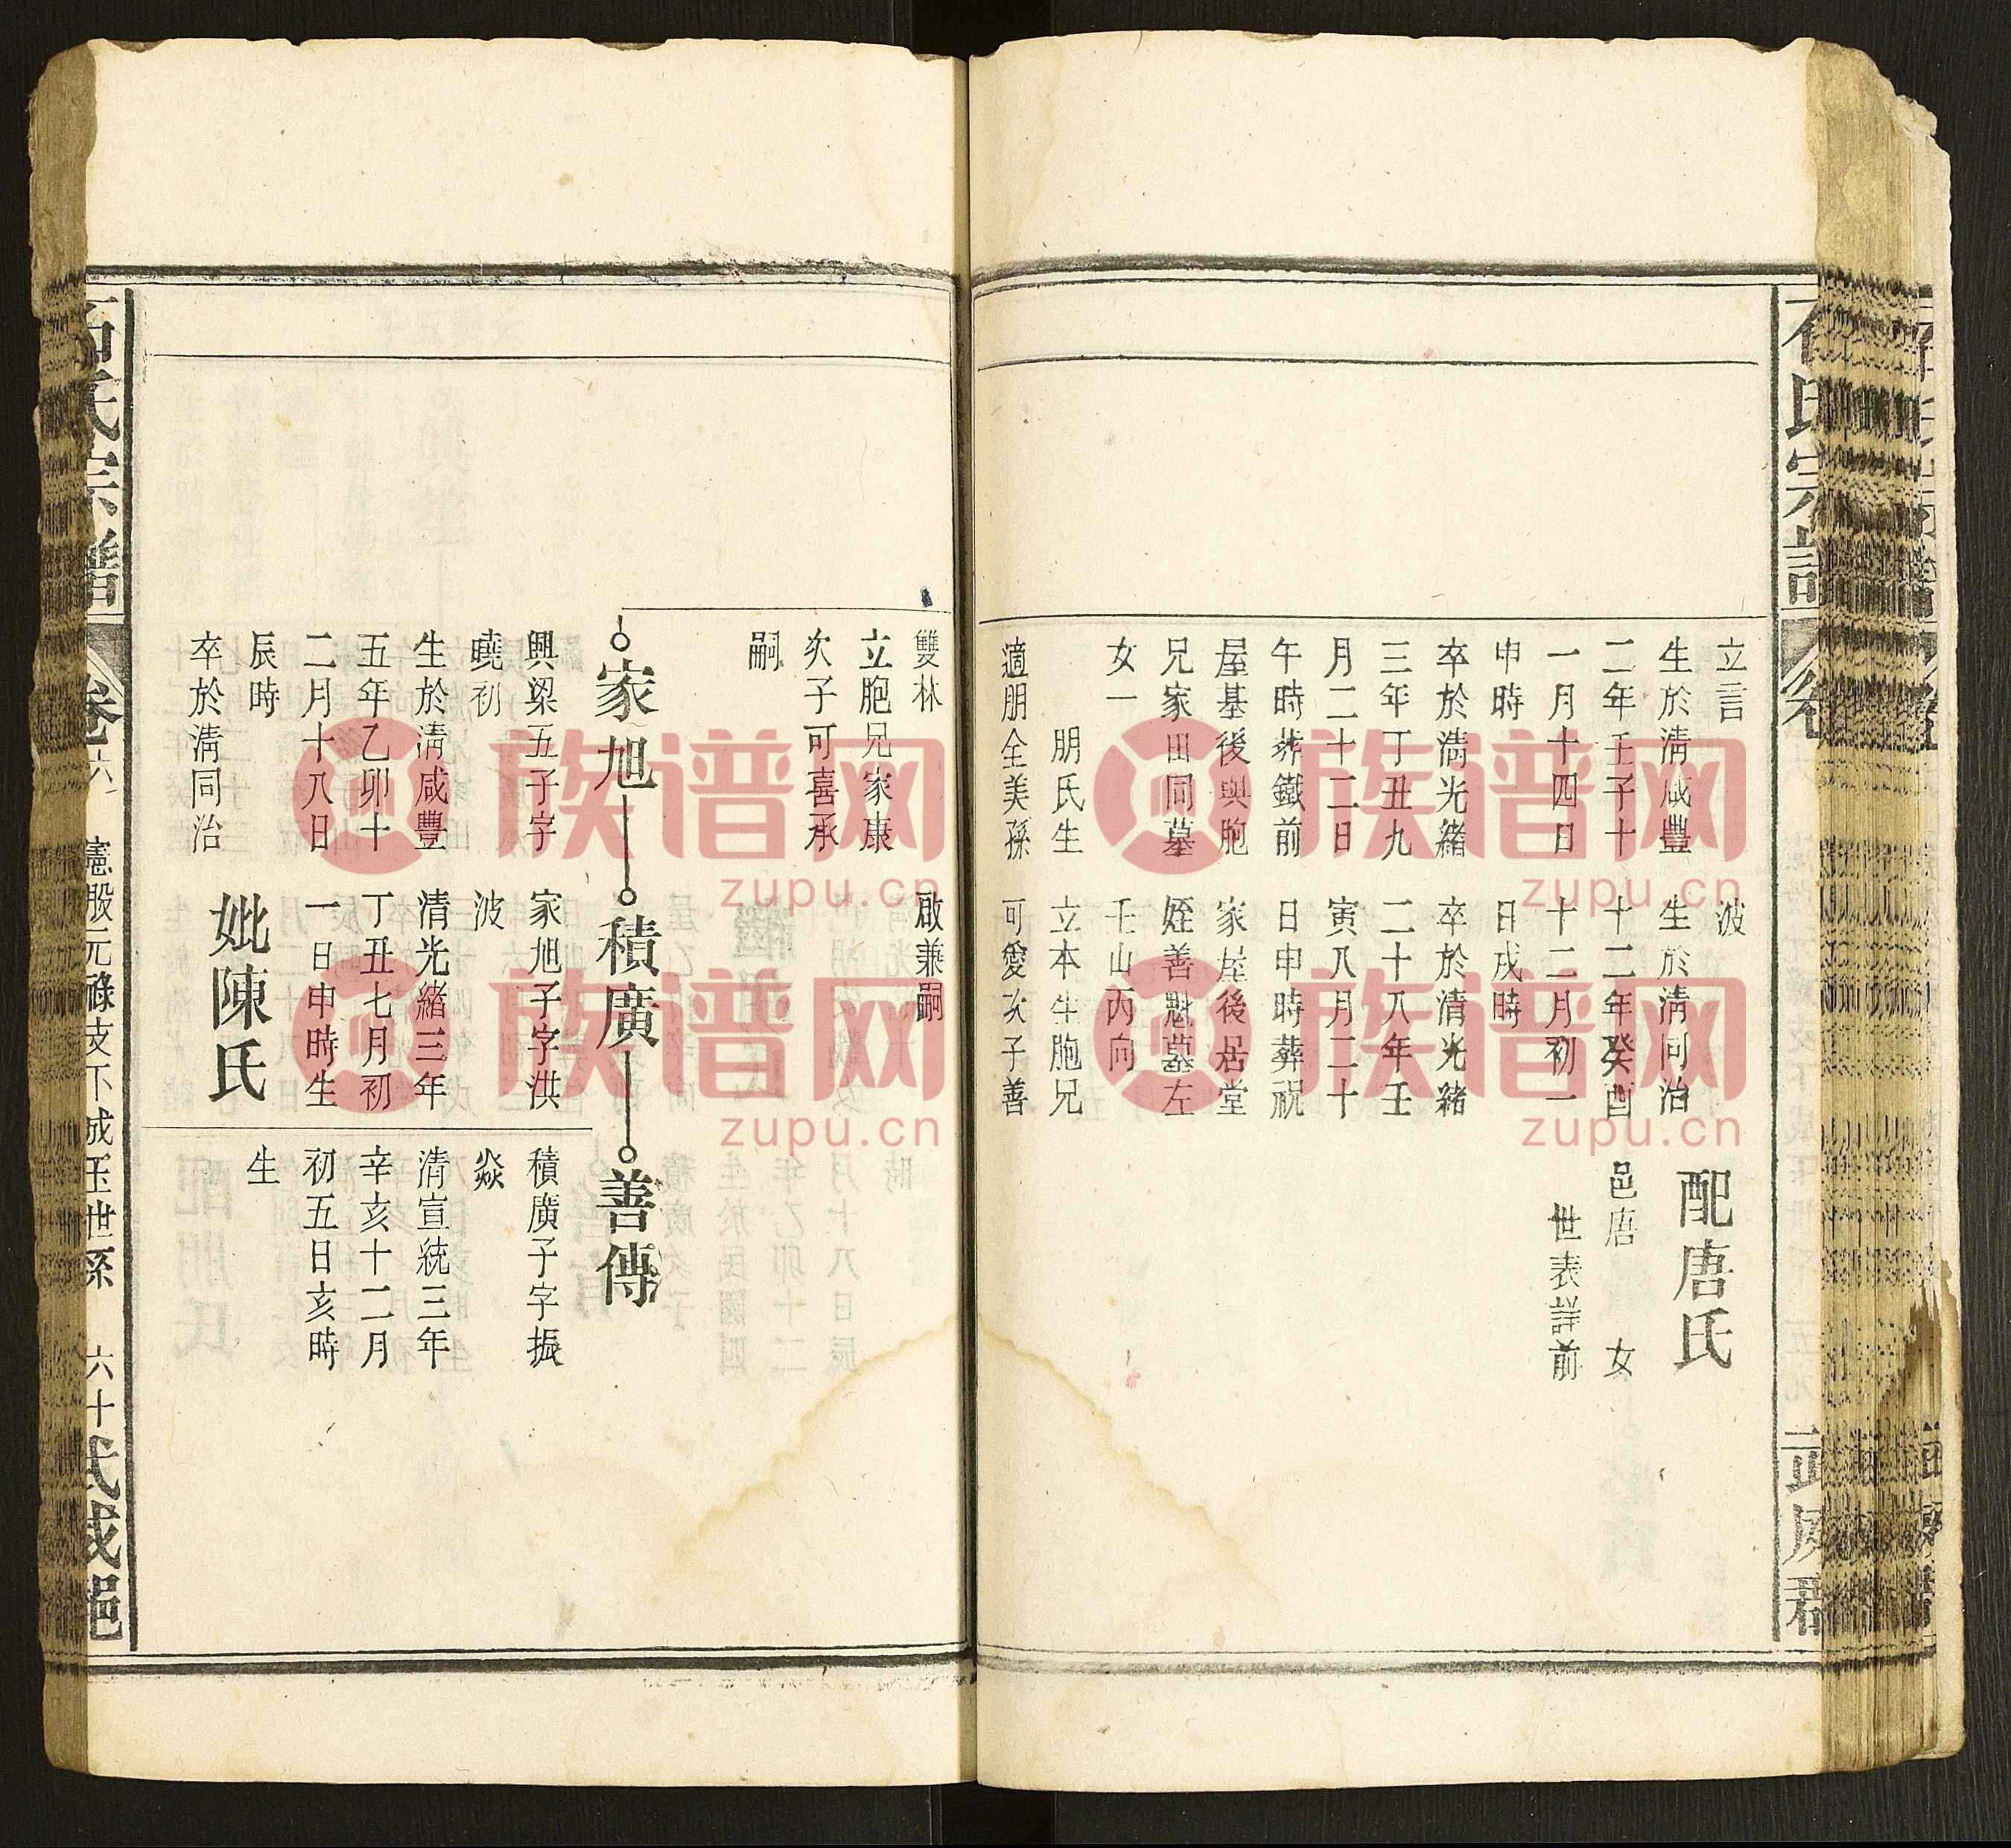 立言
生於淸咸豐
二年壬子十
一月十四日
申時
卒於淸光緖
三年丁丑九
月二十二日
午時葬鐵前
屋基後與胞
兄家田同墓
女一
朋氏生
適朋全美孫
波
生於淸同治
十二年癸酉
十二月初一
日戌時
卒於淸光緒
二十八年壬
寅八月二十
日申時葬祝
家屋後居堂
姪善魁墓左
壬山丙向
立本生胞兄
可愛次子善
配唐氏
邑唐 女
世表詳前
雙林
立胞兄家康
次子可喜承
嗣
啟兼嗣
家旭
積廣
善傳
興梁五子字
曉初
生於淸咸豐
五年乙卯十
二月十八日
辰時
卒於淸同治
家旭子字洪
波
淸光緒三年
丁丑七月初
一日申時生
妣陳氏
積廣子字振
焱
淸宣統三年
辛亥十二月
初五日亥時
生
石氏宗譜
卷六
憲股元祿支下成玉世孫
六十
族谱网
zupu.cn
族谱网
zupu.cn
族谱网
zupu.cn
族谱网
zupu.cn